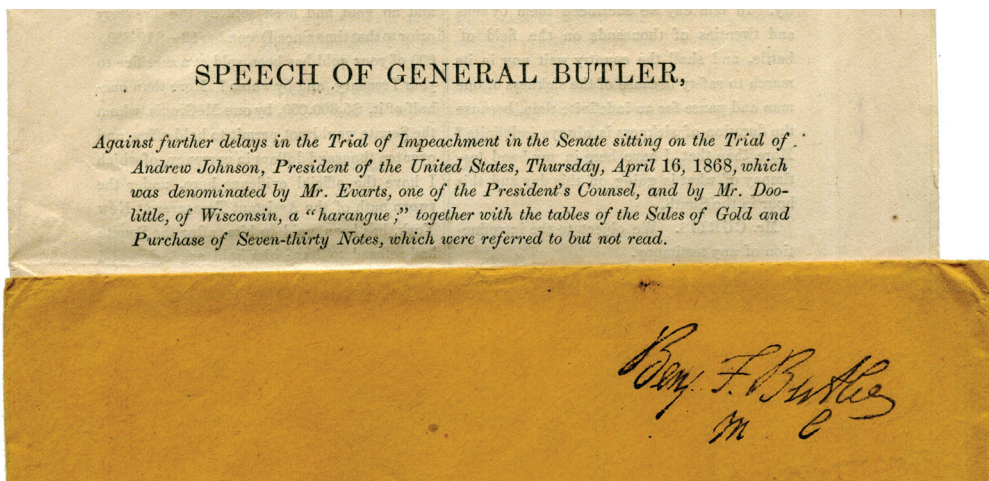 SPEECH OF GENERAL BUTLER,
Against further delays in the Trial of Impeachment in the Senate sitting on the Trial of
Andrew Johnson, President of the United States, Thursday, April 16, 1868, which
was denominated by Mr. Evarts, one of the President's Counsel, and by Mr. Doo-
little, of Wisconsin, a "harangue;" together with the tables of the Sales of Gold and
Purchase of Seven-thirty Notes, which were referred to but not read.
Benj. F. Butler
M C